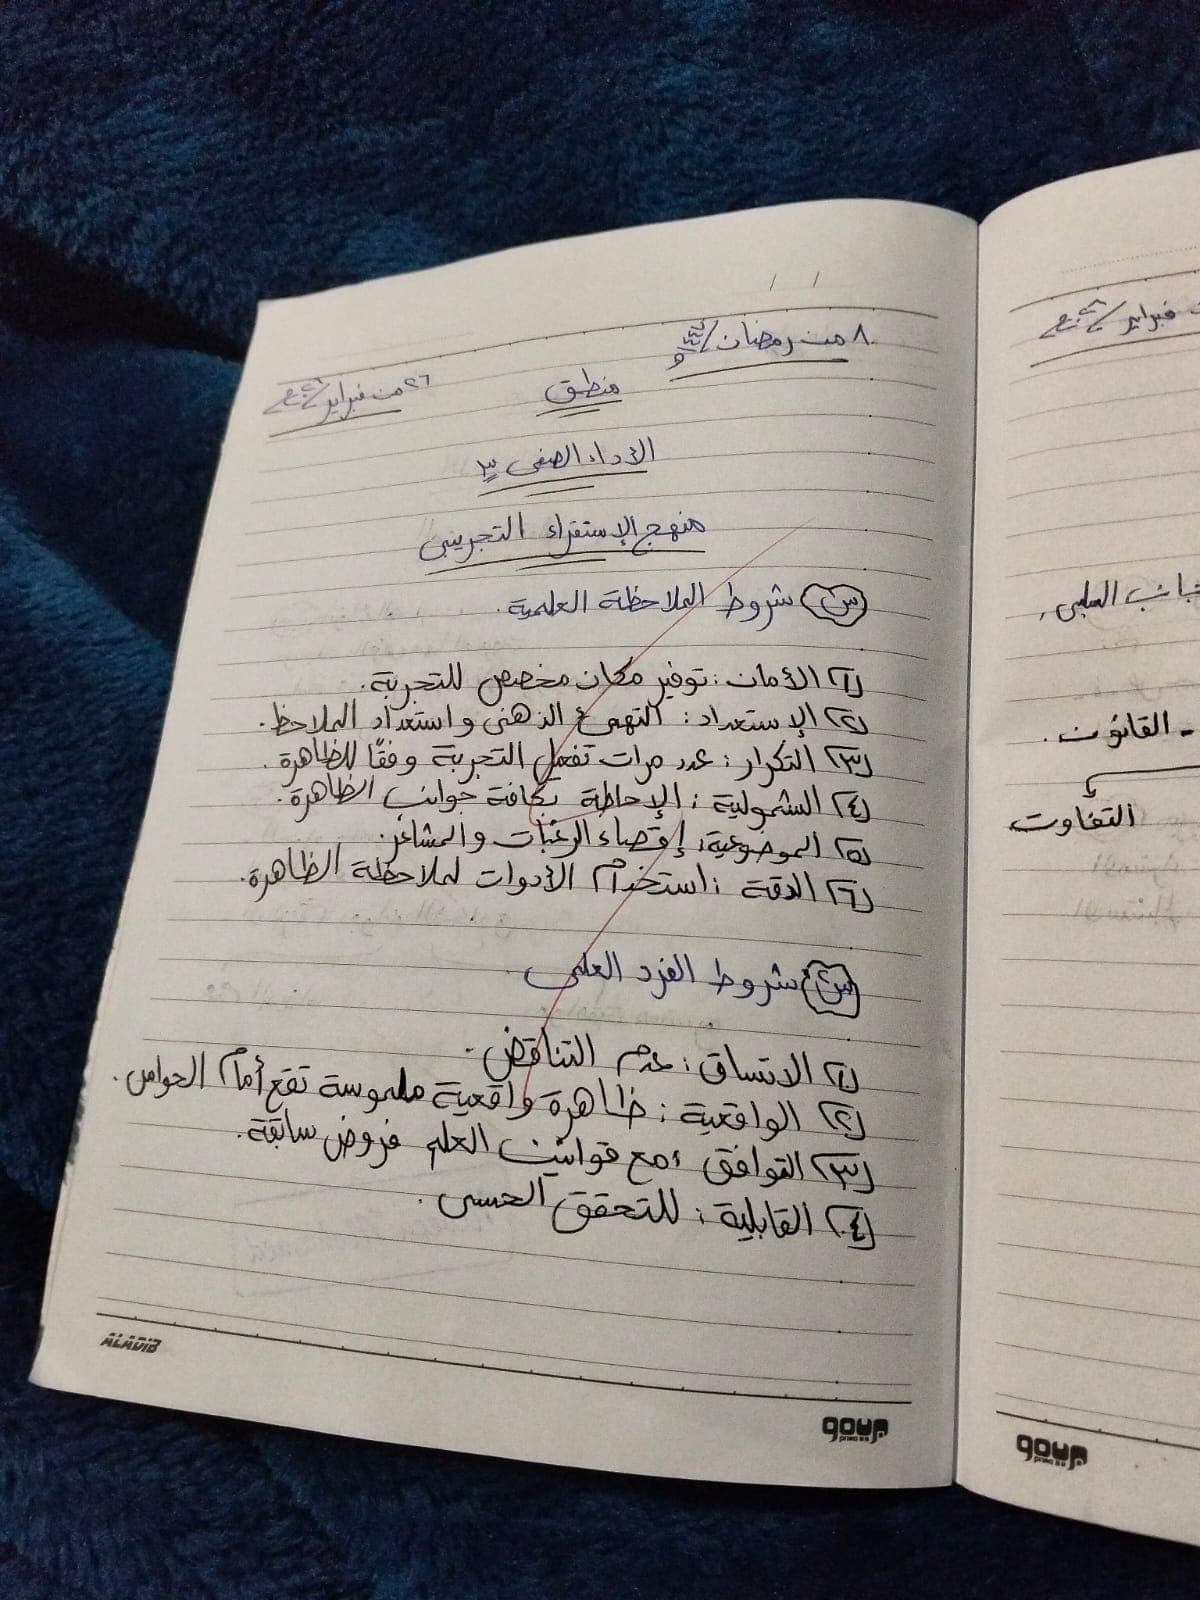 ٨ من رمضان /
٢٦ من فبراير /
منطق
الأداء الصفى ٣
منهج الإستقراء التجريبى
س١ شروط الملاحظة العلمية.
١) الأمان: توفير مكان مخصص للتجربة.
٢) الإستعداد: التهيؤ الذهنى واستعداد الملاحظ.
٣) التكرار: عدد مرات تفعيل التجربة وفقًا للظاهرة.
٤) الشمولية: الإحاطة بكافة جوانب الظاهرة.
٥) الموضوعية: إقصاء الرغبات والمشاعر.
٦) الدقة: استخدام الأدوات لملاحظة الظاهرة.
س٢ شروط الفرد العلمى.
١) الاتساق: عدم التناقض.
٢) الواقعية: ظاهرة واقعية ملموسة تقع أمام الحواس.
٣) التوافق: مع قوانين العلم فروض سابقة.
٤) القابلية: للتحقق الحسى.
ALADIB
فبراير /
السلبى.
- القانون.
التفاوت